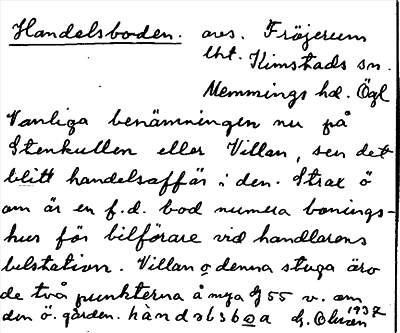 Handelsboden. avs. Fröjerum
lht. Kimstads sn.
Memmings hd. Ögl
Vanliga benämningen nu på
Stenkullen eller Villan, sen det
blitt handelsaffär i den. Strax ö
om är en f.d. bod numera bonings-
hus för bilförare vid handlarens
bilstation. Villan o denna stuga äro
de två punkterna å mya 55 v. om
den ö. gården. handəlsbωa G. Olsson 1937